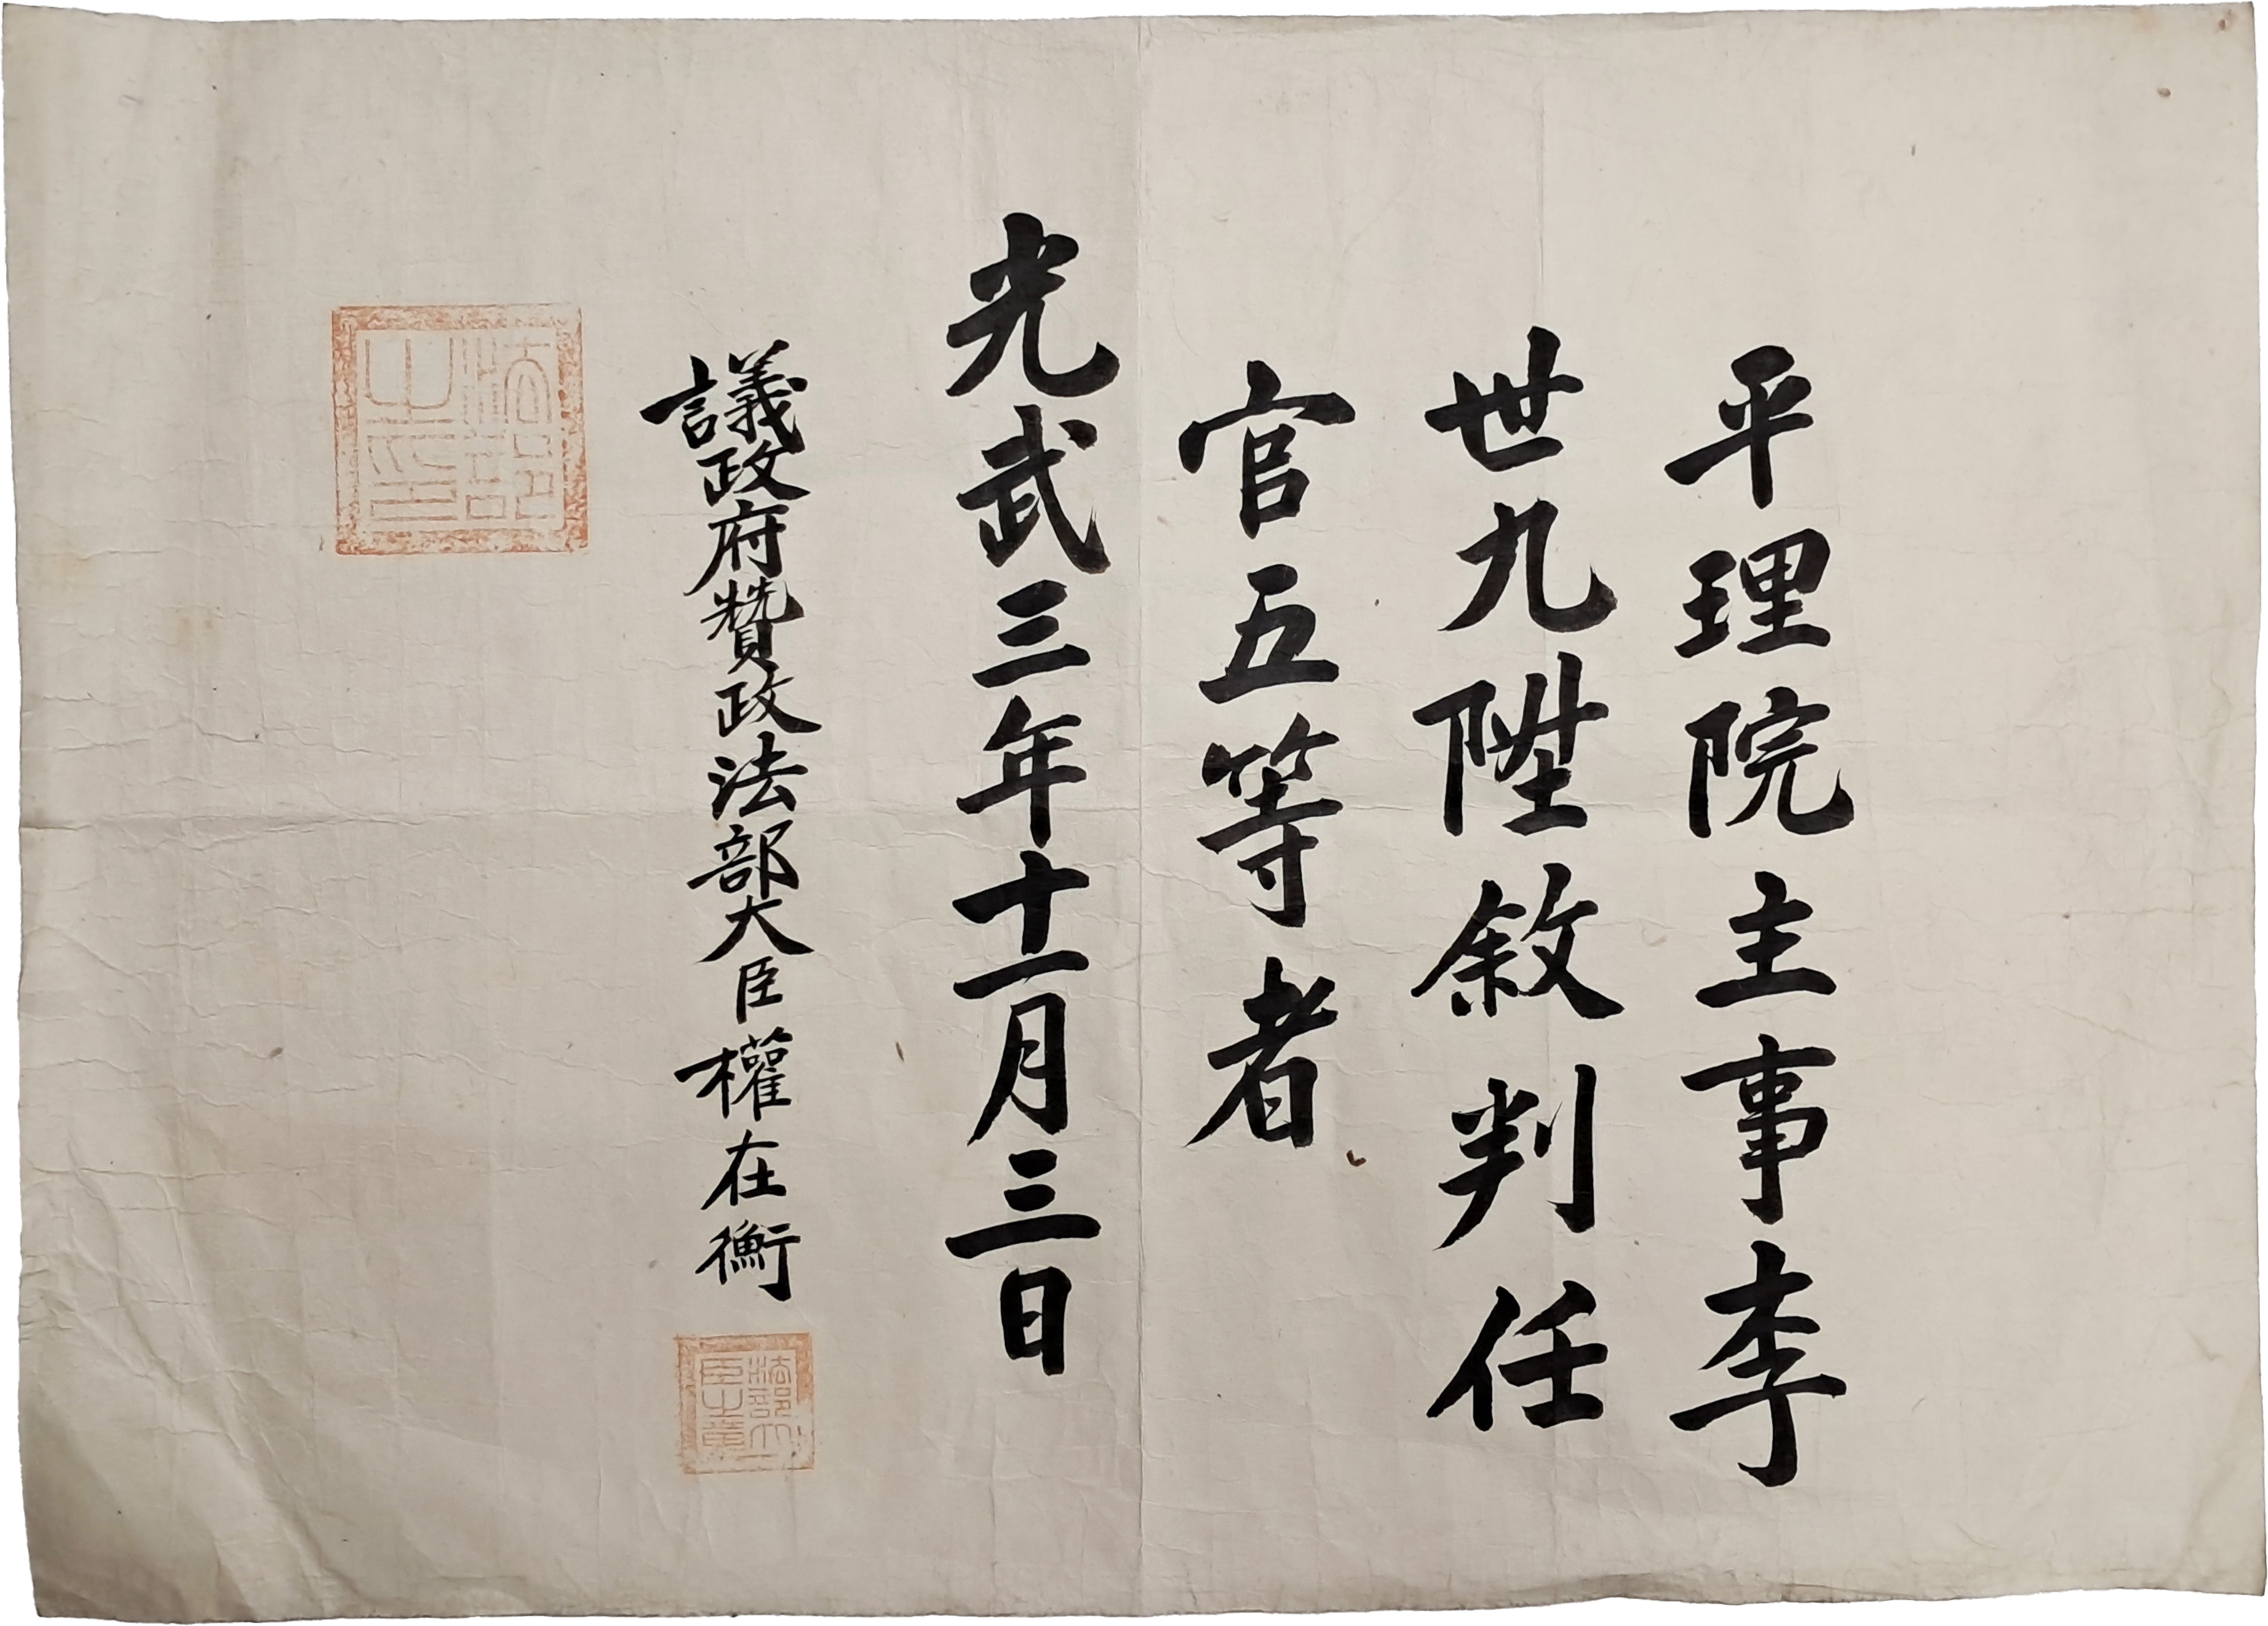 平理院主事李
世九陞敘判任
官五等者
光武三年十一月三日
議政府贊政法部大臣權在衡
法部大臣之章
法部之印